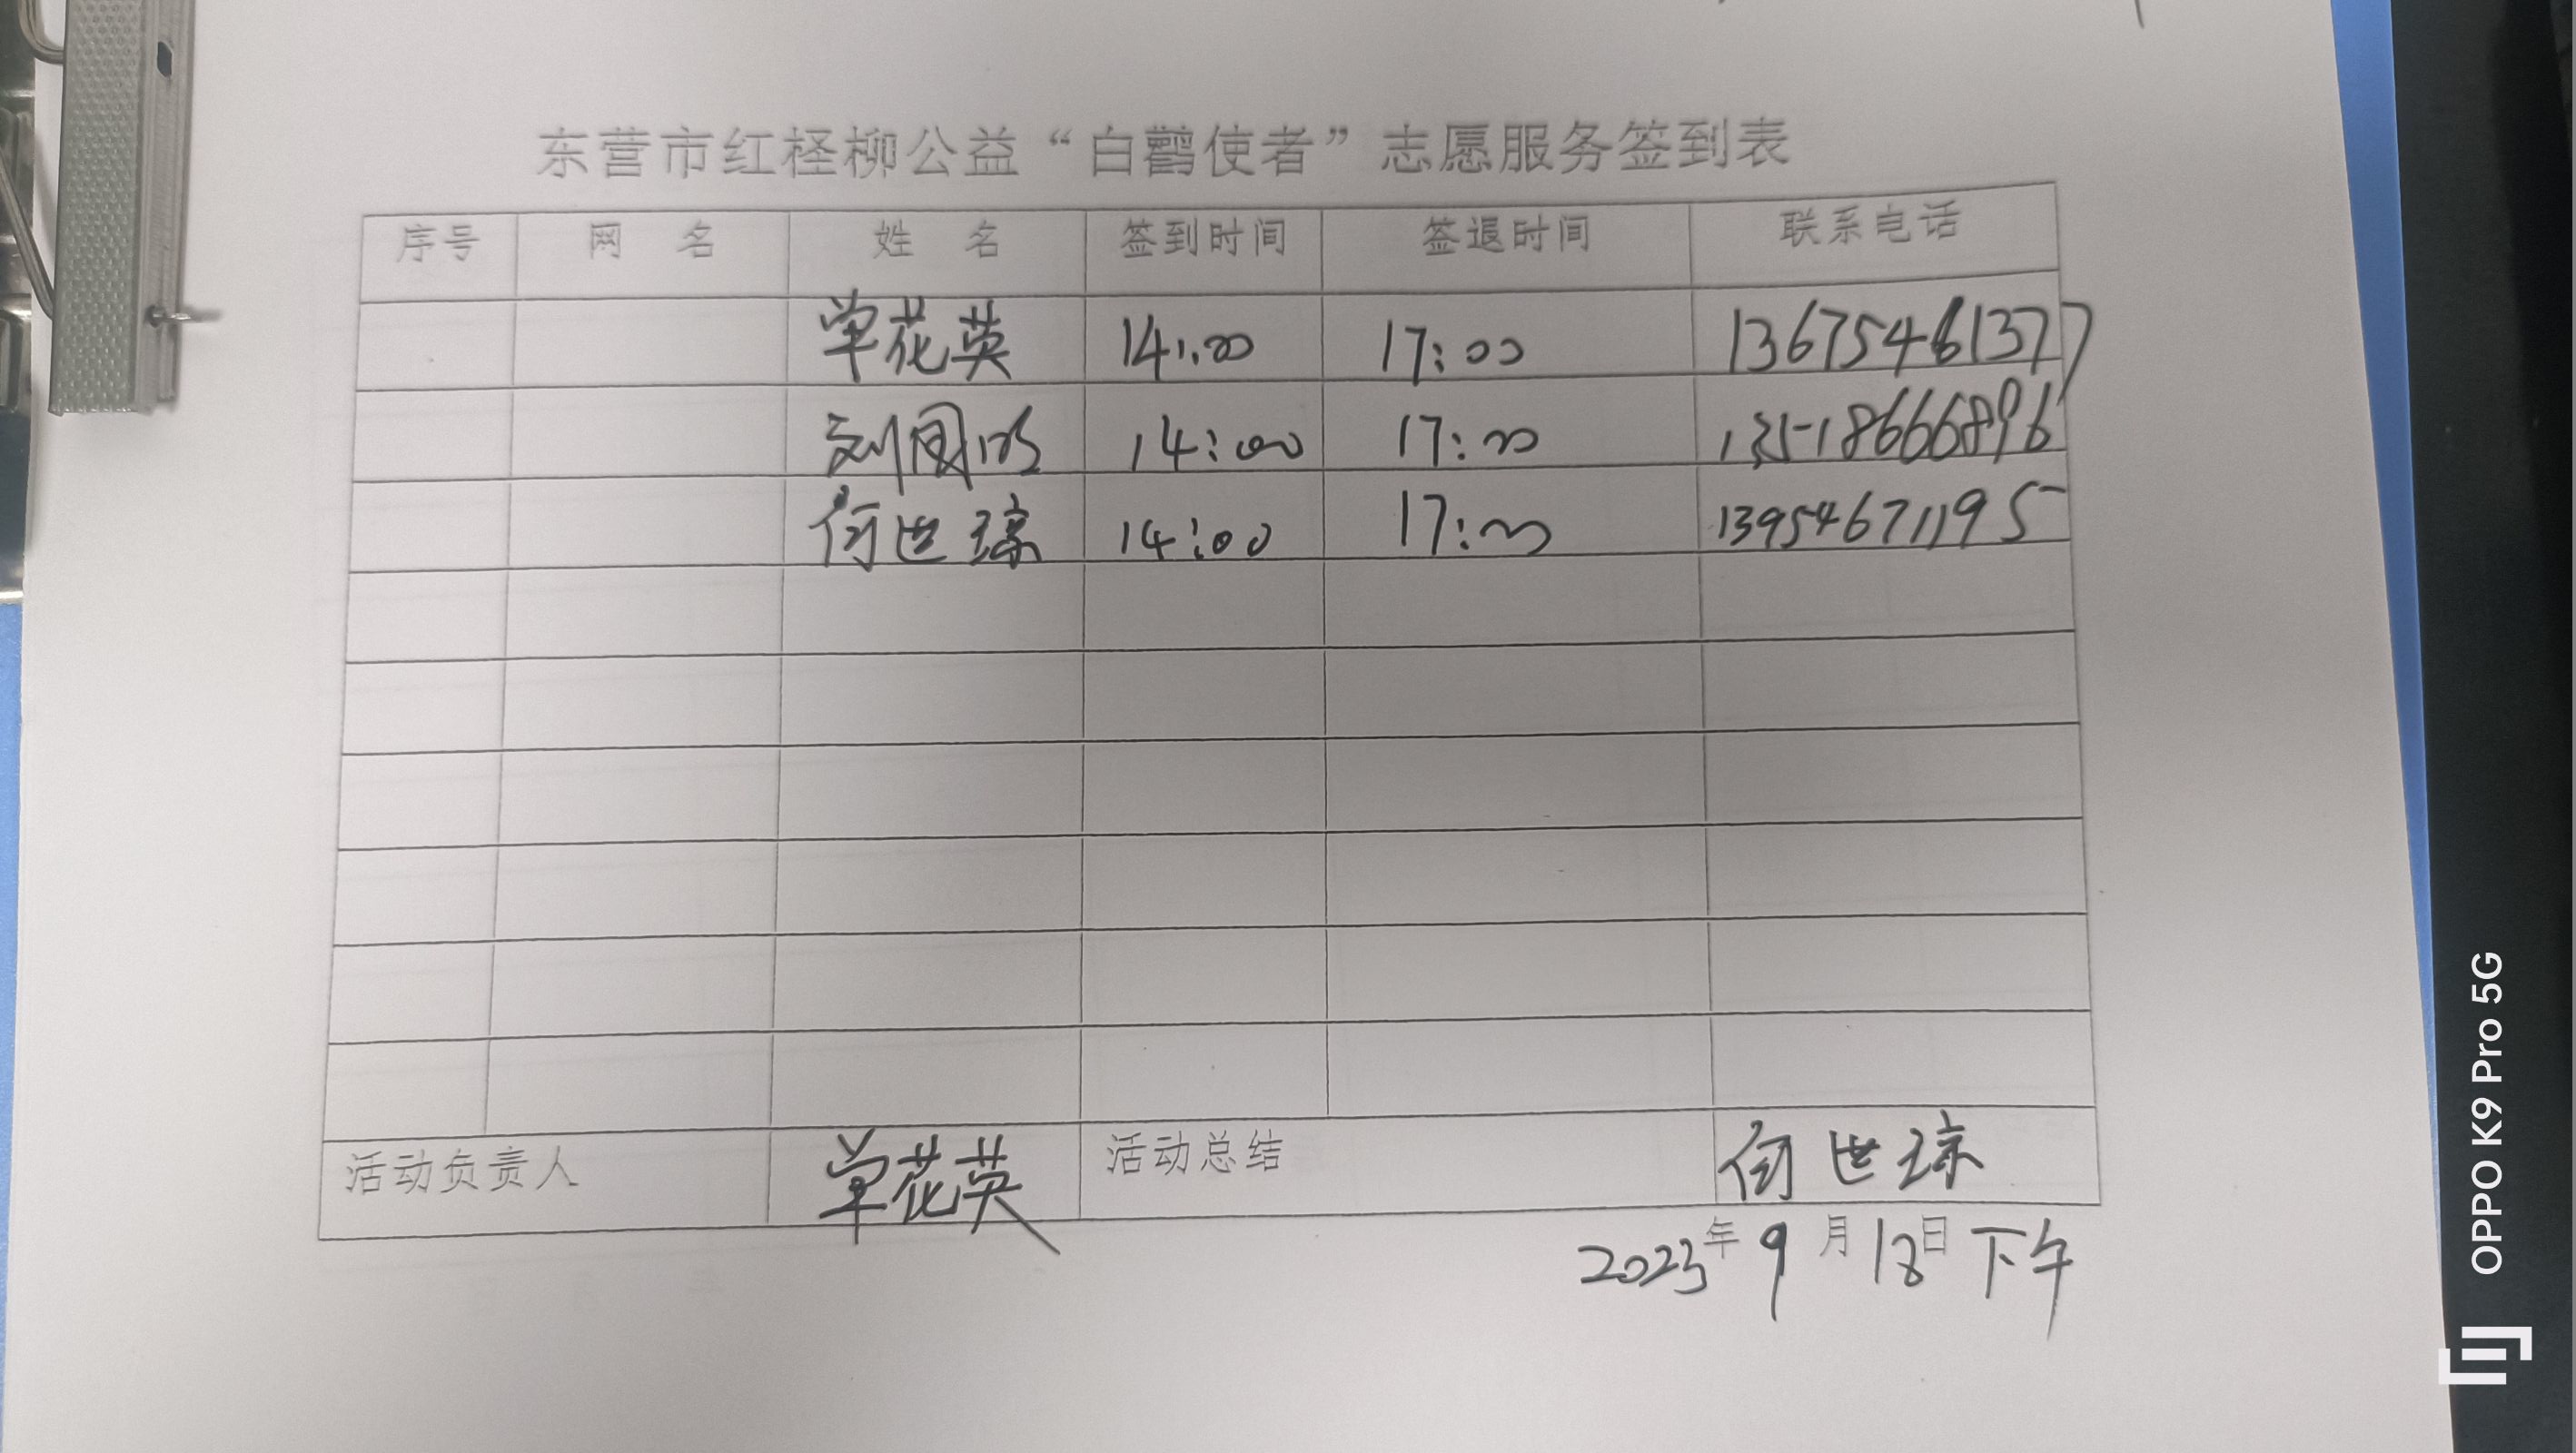 东营市红柽柳公益“白鹳使者”志愿服务签到表
序号 网 名 姓 名 签到时间 签退时间 联系电话
单花英 14:00 17:00 13675461377
刘国明 14:00 17:00 13518666896
何世琼 14:00 17:00 13954671195
活动负责人 单花英 活动总结 何世琼
2023年9月18日下午
OPPO K9 Pro 5G